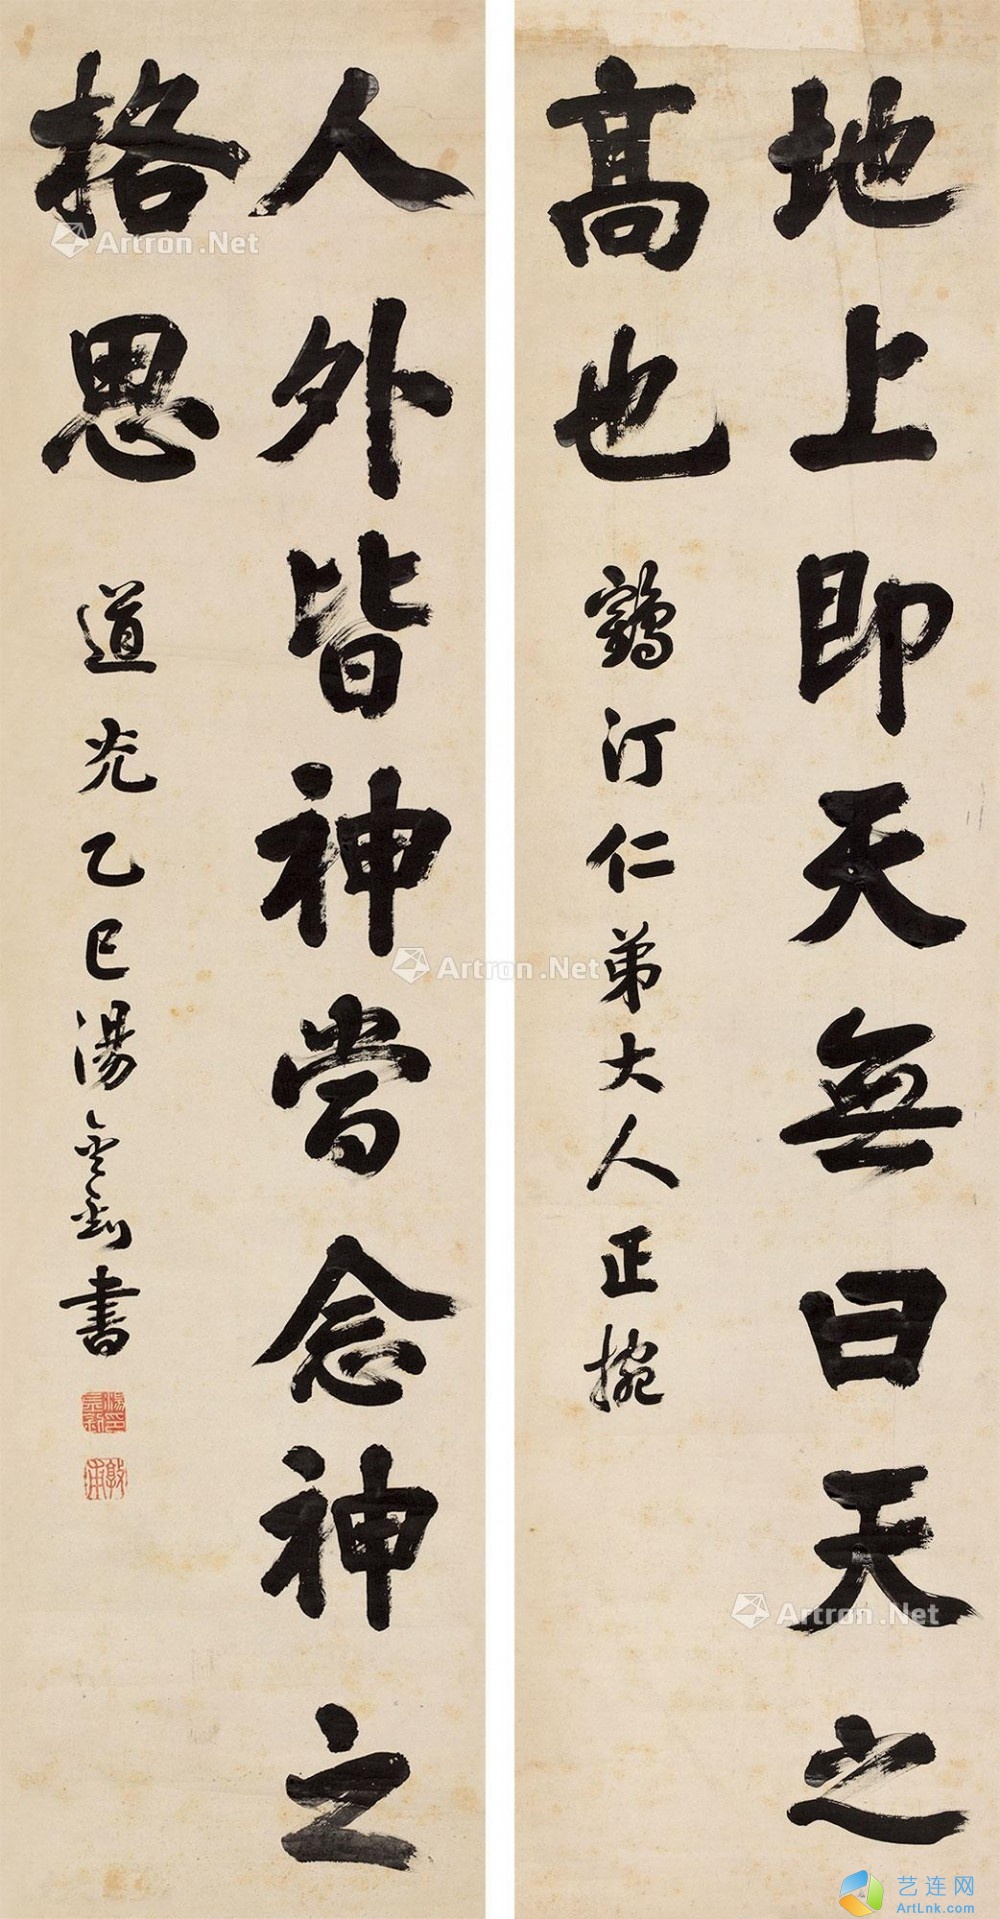 地上即天無曰天之
高也
鶴汀仁弟大人正捥
人外皆神當念神之
格思
道光乙巳湯金釗書
湯金釗印
敦甫
Artron.Net
Artron.Net
Artron.Net
艺连网
ArtLnk.com